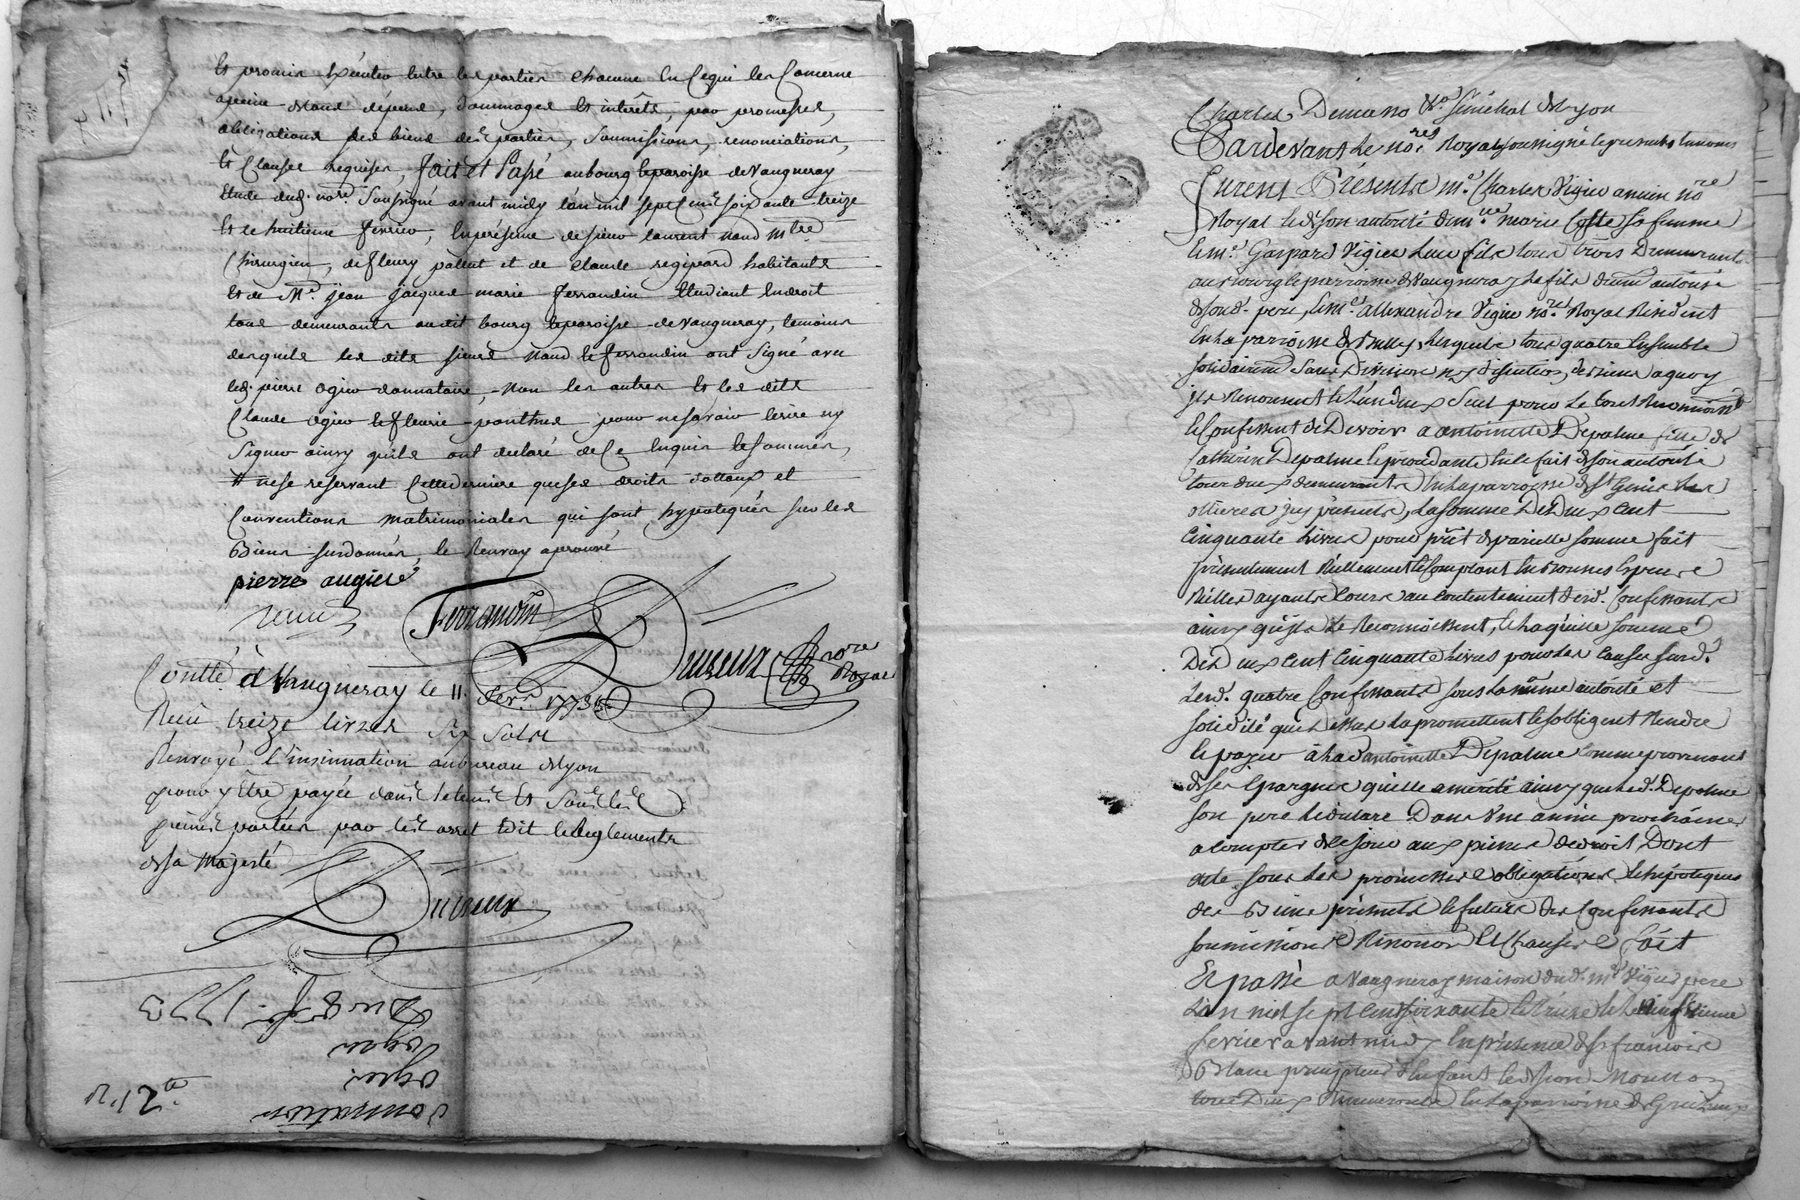 et promis exécuter entre les parties chacune en ce qui les concerne
apeine de tous dépens, dommages et intérêts, par promesses,
obligations des biens des parties, soumissions, renonciations,
et clauses requises, fait et Passé au bourg et paroisse de Vaugneray
Etude dud. notre soussigné avant midy l'an mil sept cent soixante treize
et le huitieme fevrier, en présence de sieur laurent naud mtre
Chirurgien, de fleury pallut et de claude regipeard habitants
et de Mr. jean jacques marie ferrandin Etudiant endroit
tous demeurants audit bourg et paroisse de Vaugneray, temoins
desquels les dits sieurs naud et ferrandin ont signé avec
led. pierre ogier donnataire, non les autres et les dits
Claude ogier et fleurie ponthus pour ne savoir écrire ny
signer ainsy qu'ils ont declaré de ce enquis et sommés,
ne se reservant cette derniere que ses droits dottaux et
Conventions matrimoniales qui sont hypotequés sur les
Biens surdonnés, le Renvoy aprouvé
pierre augier
naud Ferrandin Dutreux Nore Royal
Contlé. à Vaugneray le 11. fevr. 1773
Reçu treize livres six sols
Renvoyé l'insinuation au bureau de lyon
pour y être payée dans le tems et sous les
peines portées par les arret Edit et Reglements
de sa Majesté
Dutreux
Du 8 fr. 1773
ogier
ogier
Donnation
Charles Demans Senechal de Lyon
Pardevant le nore. Royal soussigné et presents temoins
Furent Présents mr. Charles Vigier ancien nore
Royal et de son autorité marie Coste sa femme
et mr. Gaspard Vigier leur fils tous trois Demeurant
au bourg et parroisse de Vaugneray le fils de mme autorité
de sond. pere, et mr. allexandre Vigier nore. Royal Résident
en la parroisse de, lesquels tous quatre ensemble
solidairemt. sans Division ny discution, de biens aquoy
ils Renoncent et l'un d'eux seul pour le tout
et Confessent de Devoir a antoinette Depalme fille de
Catherin Depalme et procédante en ce fait de son autorité
tous deux demeurants en la parroisse de St Genis les
ollieres icy présents, la somme De Deux cent
Cinquante Livres pour prêt de pareille somme fait
présentement Réellement et Comptant en bonnes Especes
Réelles ayants cours au contentement desd. Confessants
ainsy qu'ils le Reconnoissent, et laquelle somme
De Deux cent Cinquante Livres pour les causes surd.
lesd. quatre Confessants sous la même autorité et
solidité que dessus la promettent et s'obligent Rendre
et payer à lad. antoinette Depalme comme provenant
de ses Epargnes quelle a mérité ainsy que led. Depalme
son pere le déclare Dans une année prochaine
a Compter de ce jour aux peines de droit Dont
acte sous les promesses obligations et hipoteques
des Biens présents et futurs des Confessants
soumissions Renonon et Clauses fait
Et passé a Vaugneray maison dud. mr Vigier pere
L'an mil sept cent soixante et treize et le
fevrier avant midy En présence de sr francois
tous Deux Demeurants en la parroisse de Grezieux